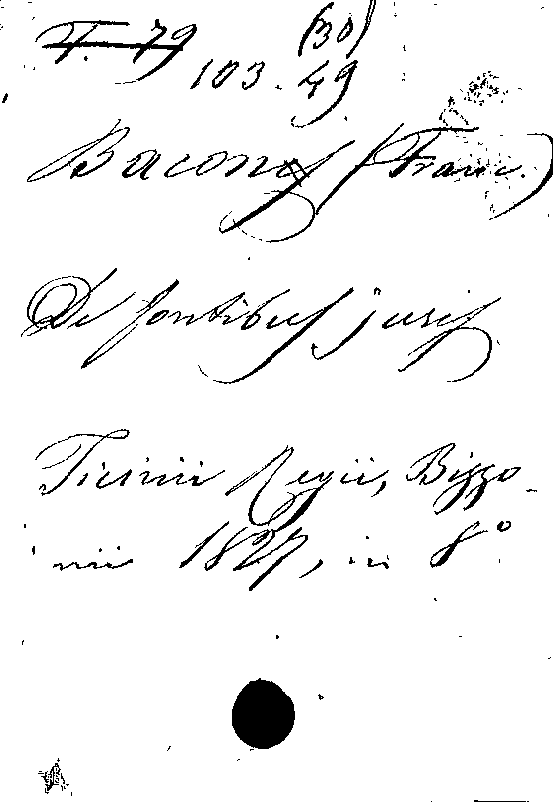 T. 79 (30)
103. 49
Baconis (Franc.)
De fontibus juris
Ticinii Regii, Bizzo-
nii 1827, in 8°